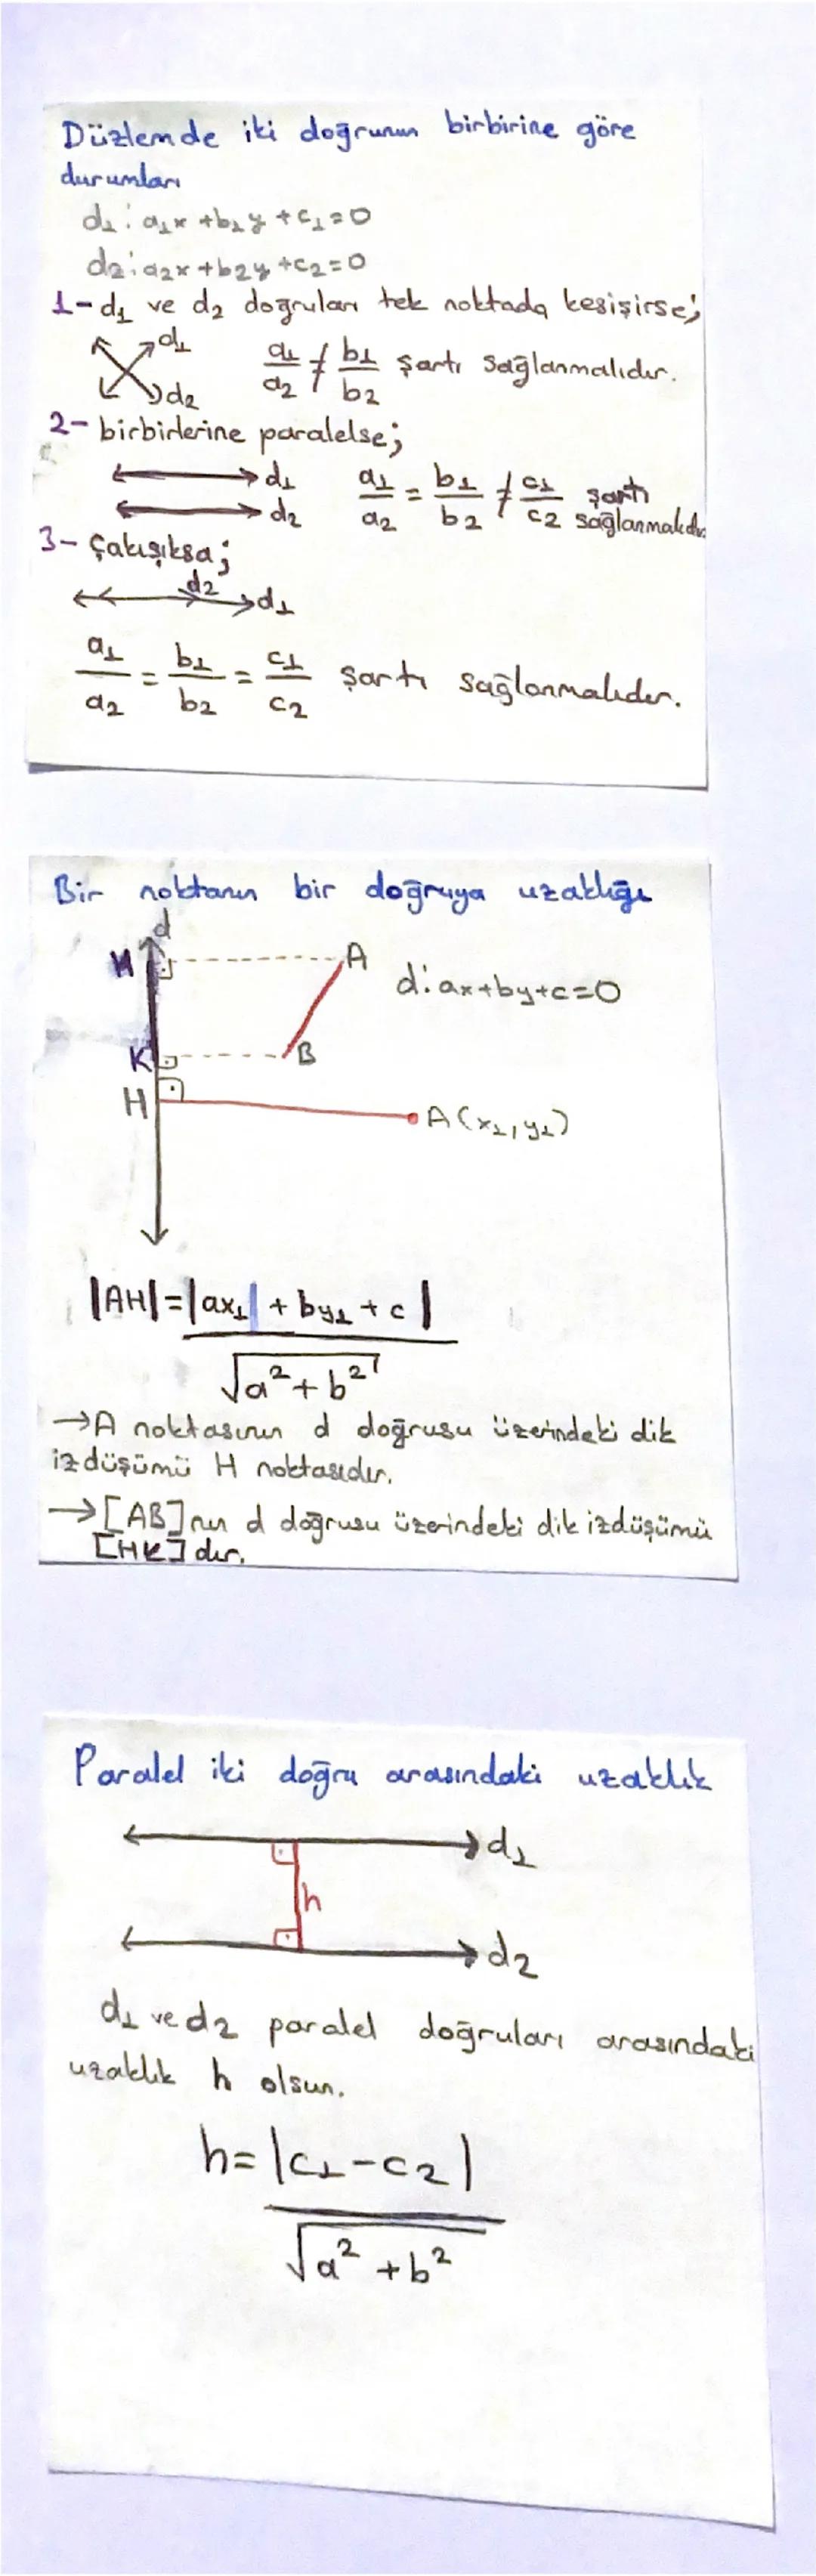 Düzlemde iki doğrunun birbirine göre
durumları
d₁: a₁x + b₁y + c₁ = 0
d₂: a₂x + b₂y + c₂ = 0
1- d₁ ve d₂ doğruları tek noktada kesişirse;
d₁
d₂
a₁/a₂ ≠ b₁/b₂ şartı sağlanmalıdır.
2- birbirlerine paralelse;
d₁
d₂
a₁/a₂ = b₁/b₂ ≠ c₁/c₂ şartı
sağlanmalıdır.
3- Çakışıksa;
d₂
d₁
a₁/a₂ = b₁/b₂ = c₁/c₂ şartı sağlanmalıdır.
Bir noktanın bir doğruya uzaklığı
d
H
A
d: ax+by+c=0
K
B
H
A(x₁,y₁)
|AH| = |ax₁| + by₁ + c|
√a² + b²
→A noktasının d doğrusu üzerindeki dik
izdüşümü H noktasıdır.
→[AB]nın d doğrusu üzerindeki dik izdüşümü
[HK] dır.
Paralel iki doğru arasındaki uzaklık
d₁
h
d₂
d₁ ve d₂ paralel doğruları arasındaki
uzaklık h olsun.
h = |c₁ - c₂|
√a² + b²